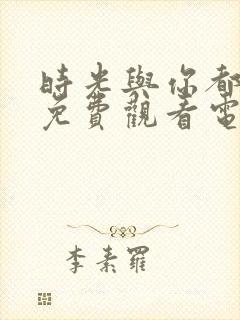 時光與你都
免費觀看電
李素羅